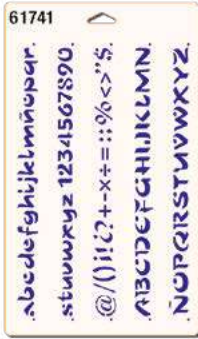 61741
abcdefghijklmñopqr
stuvwxyz 1234567890
@/()¡!¿?+-x÷=:;%<>"$
ABCDEFGHIJKLMN
ÑOPQRSTUVWXYZ